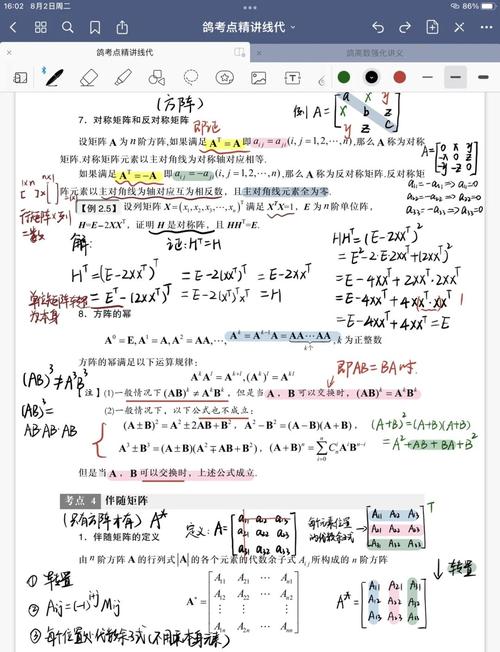 16:02 8月2日周二
86%
鸽考点精讲线代
鸽考点精讲线代
鸽高数强化讲义
(方阵)
7. 对称矩阵和反对称矩阵 即证
例 A=
a x y
x b z
y z c
设矩阵 A 为 n 阶方阵,如果满足 Aᵀ=A 即 aᵢⱼ=aⱼᵢ(i,j=1,2,⋯,n),那么 A 称为对称
矩阵.对称矩阵元素以主对角线为对称轴对应相等.
如果满足 Aᵀ=-A 即 aᵢⱼ=-aⱼᵢ(i,j=1,2,⋯,n),那么 A 称为反对称矩阵.反对称矩
阵元素以主对角线为轴对应互为相反数,且主对角线元素全为零.
A=
0 x y
-x 0 z
-y -z 0
a₁₁=-a₁₁ => a₁₁=0
a₂₂=-a₂₂ => a₂₂=0
a₃₃=-a₃₃ => a₃₃=0
1×n n×1
=数
【例 2.5】设列矩阵 X=(x₁,x₂,x₃,⋯,xₙ)ᵀ 满足 XᵀX=1, E 为 n 阶单位阵,
H=E-2XXᵀ, 证明 H 是对称阵, 且 HHᵀ=E.
解: 证: Hᵀ=H
Hᵀ=(E-2XXᵀ)ᵀ = E-2(XXᵀ)ᵀ = E-2XXᵀ
= Eᵀ-(2XXᵀ)ᵀ = E-2(Xᵀ)ᵀXᵀ = H
单位矩阵转置为本身
HHᵀ=(E-2XXᵀ)²
=E²-2·E·2XXᵀ+(2XXᵀ)²
=E-4XXᵀ+2XXᵀ·2XXᵀ
=E-4XXᵀ+4XXᵀ·XXᵀ 1
=E-4XXᵀ+4XXᵀ=E
8. 方阵的幂
A⁰=E, A¹=A, A²=AA,⋯, Aᵏ=Aᵏ⁻¹A=AA⋯AA, k 为正整数
k个
方阵的幂满足以下运算规律:
AᵏAˡ=Aᵏ⁺ˡ,(Aᵏ)ˡ=Aᵏˡ
即AB=BA时.
(AB)³≠A³B³
【注】(1)一般情况下 (AB)ᵏ≠AᵏBᵏ, 但是当 A, B 可以交换时, (AB)ᵏ=AᵏBᵏ
(AB)³=
AB·AB·AB
(2)一般情况下, 以下公式也不成立:
(A±B)²=A²±2AB+B², A²-B²=(A-B)(A+B),
A³±B³=(A±B)(A²∓AB+B²), (A+B)ⁿ=∑ⁿᵢ₌₀CⁱₙAⁱBⁿ⁻ⁱ
(A+B)²=(A+B)(A+B)
=A²+AB+BA+B²
但是当 A, B 可以交换时, 上述公式成立.
考点 4 伴随矩阵
(只有方阵才有) A*
1. 伴随矩阵的定义
定义: A=
a₁₁ a₁₂ a₁₃
a₂₁ a₂₂ a₂₃
a₃₁ a₃₂ a₃₃
每个元素位置的代数余子式
A₁₁ A₁₂ A₁₃
A₂₁ A₂₂ A₂₃
A₃₁ A₃₂ A₃₃
T
由 n 阶方阵 A 的行列式 |A| 的各个元素的代数余子式 Aᵢⱼ 所构成的 n 阶方阵
↓转置
① 转置
② Aᵢⱼ=(-1)ⁱ⁺ʲMᵢⱼ
A*=
A₁₁ A₂₁ ⋯ Aₙ₁
A₁₂ A₂₂ ⋯ Aₙ₂
⋮ ⋮ ⋮
A₁ₙ A₂ₙ ⋯ Aₙₙ
A*=
A₁₁ A₂₁ A₃₁
A₁₂ A₂₂ A₃₂
A₁₃ A₂₃ A₃₃
③ 每个位置处代数余子式(不用乘本身元素)